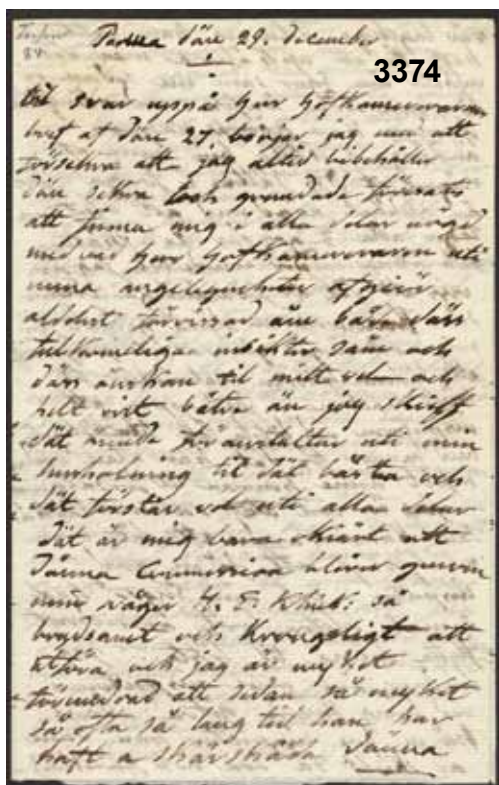 Parma däñ 29. december
3374
til svar uppå herr Hofkamereraren
bref af däñ 27 börjar jag med att
försekra att jag altid bibehåller
däñ sekra och grundade försats
att finna mig i alla delar nögd
med vad herr Hofkamereraren uti
mina angelegenheter afgiör
aldrst förvissad om både däñ
tilkomeliga insikter som och
däñ önskan til mitt vel och
helt vist bätre än jag skulf
dät ända föranstaltar uti min
husholning til dät bästa och
dät förstår vel uti alla delar
dät är mig bara okiärt att
däñna Commission blivir genom
min någer
brydsamt och krongeligt att
utföra och jag är myket
förundrad att sedan så myket
så ofta så lång tid han har
haft a däñna